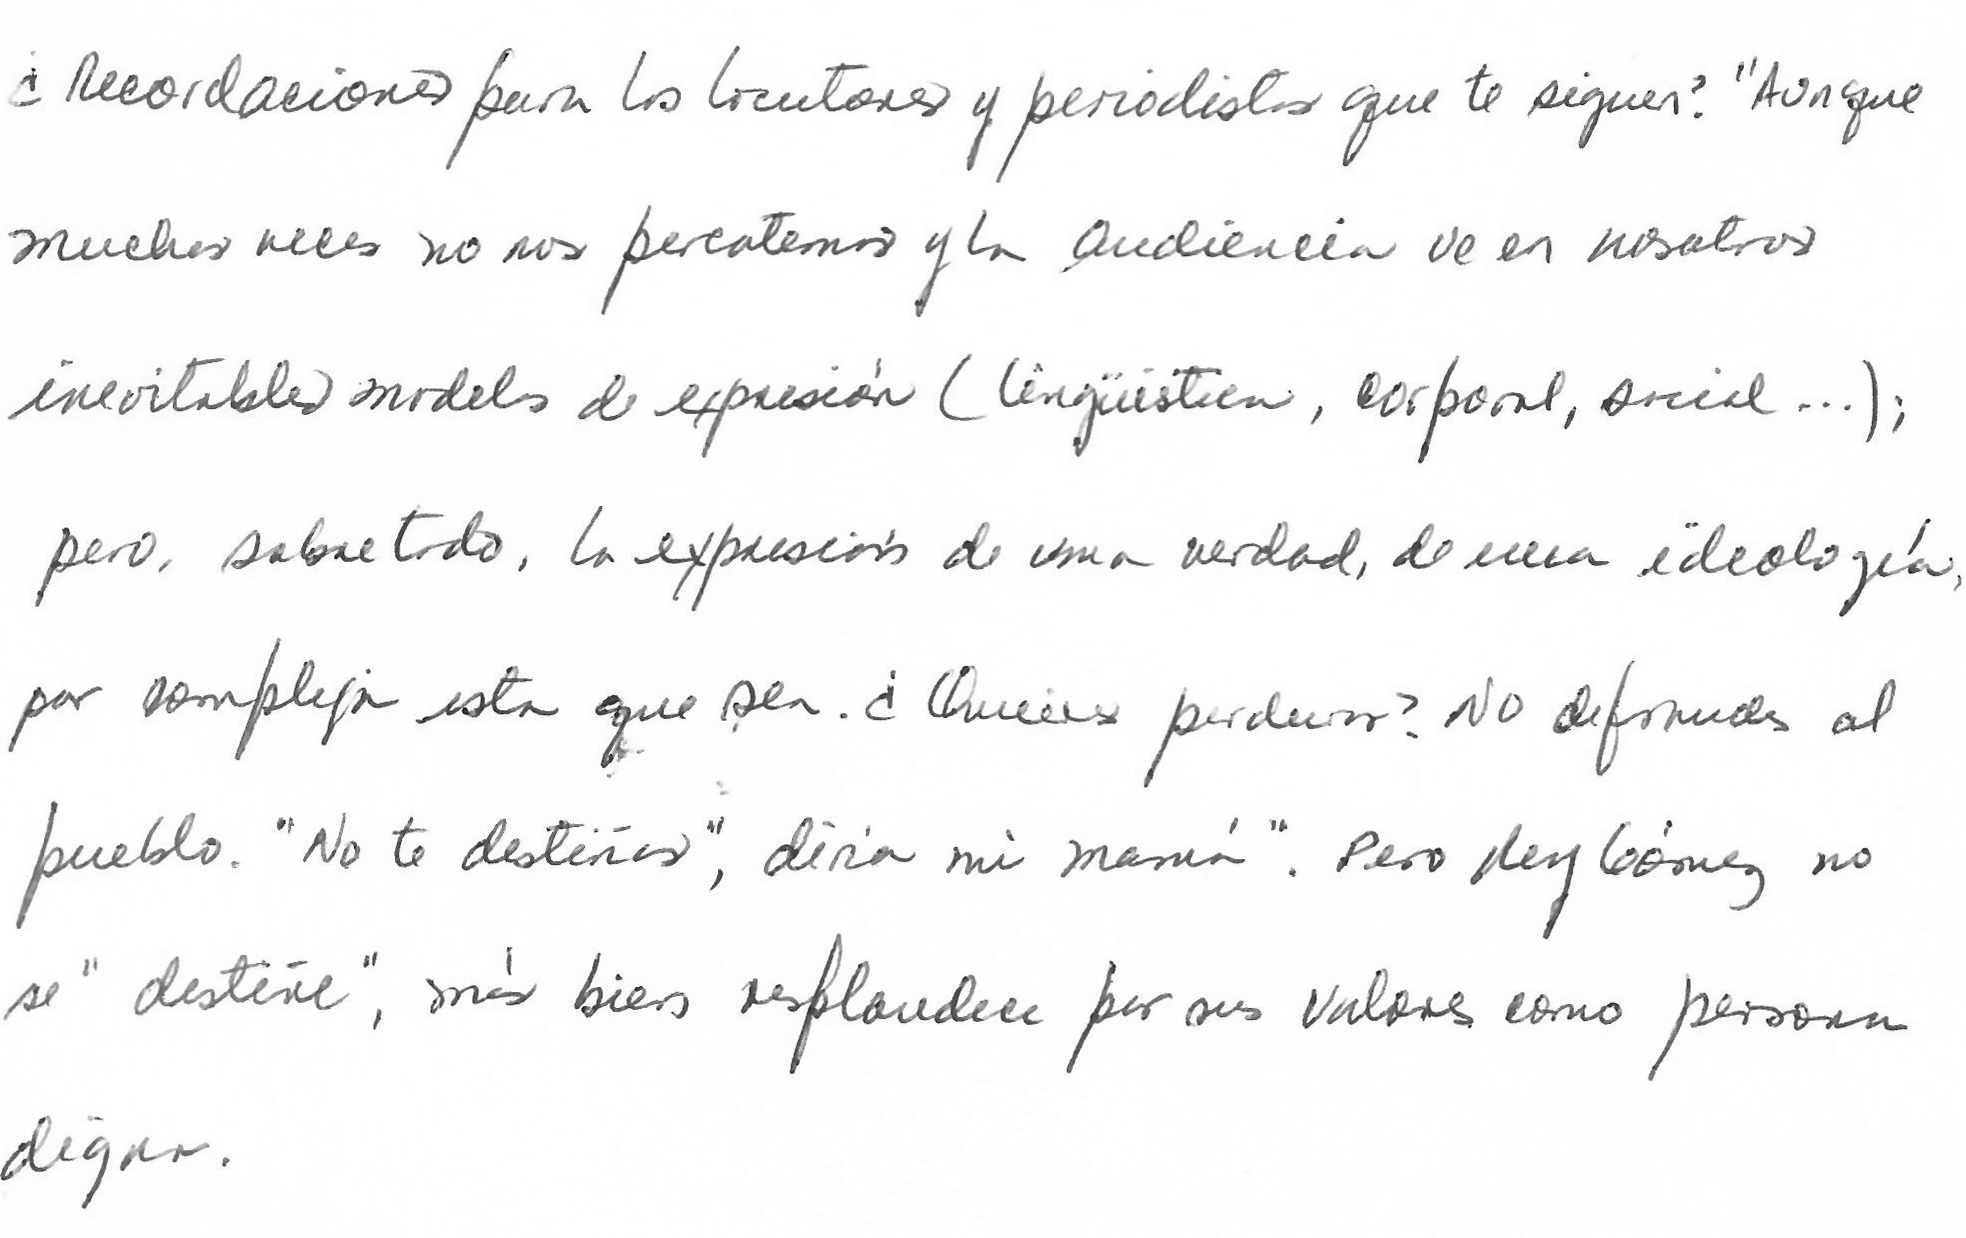 ¿Recordaciones para los locutores y periodistas que te siguen? "Aunque
muchas veces no nos percatemos y la audiencia ve en nosotros
inevitables modelos de expresión (lingüística, corporal, social...);
pero, sobre todo, la expresión de una verdad, de una ideología,
por compleja esta que sea. ¿Quieres perdurar? No defraudes al
pueblo. "No te destiñas", diría mi mamá". Pero Gómez no
se "destiñe", más bien resplandece por sus valores como persona
digna.